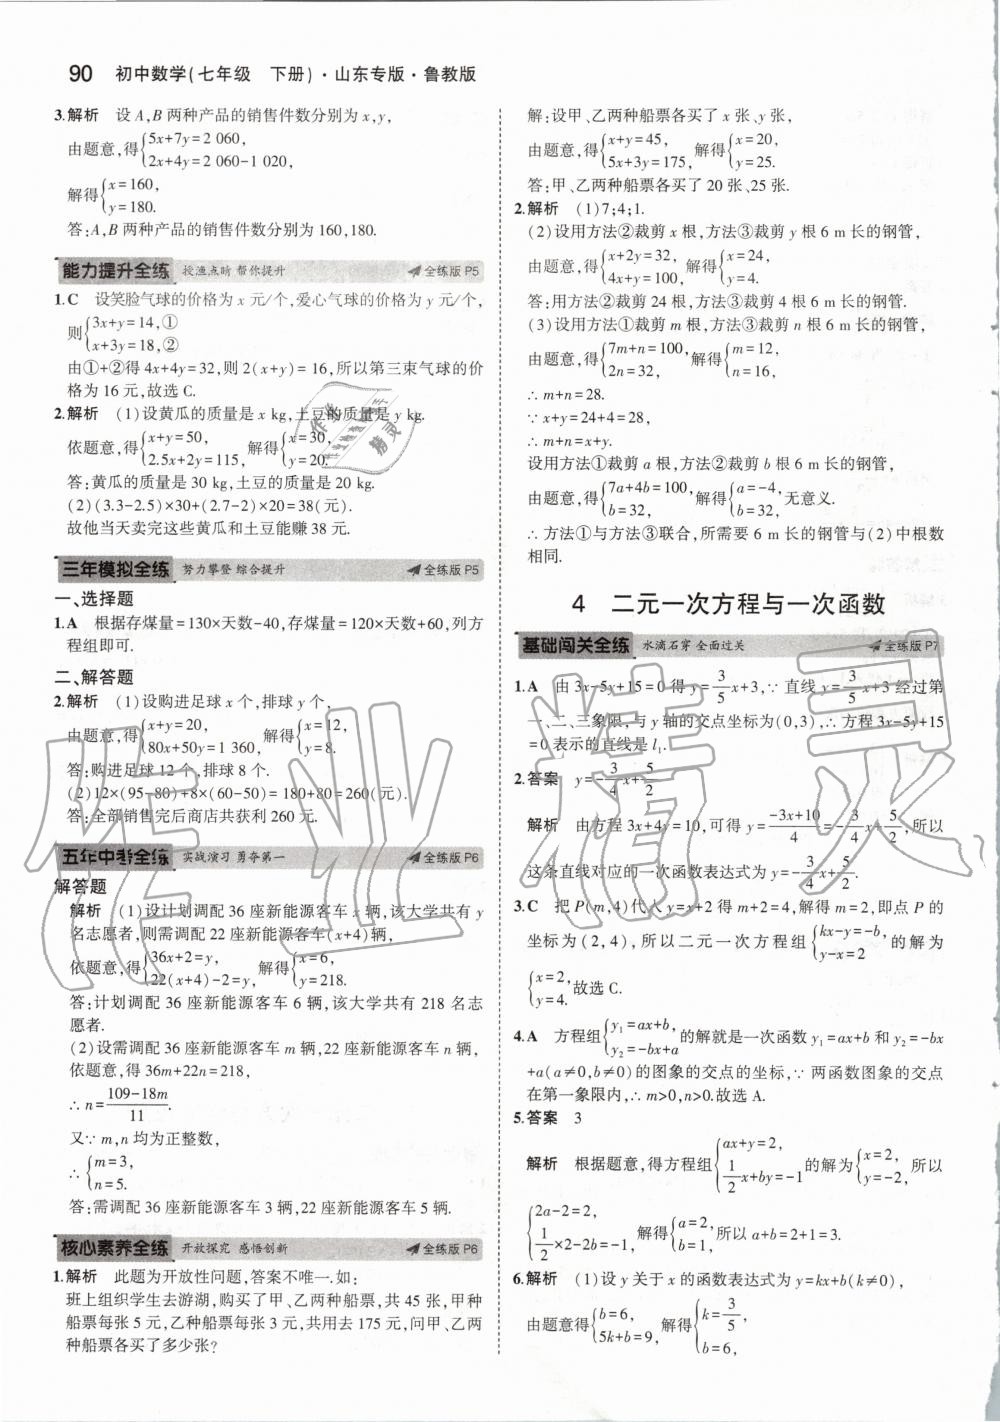 90 初中数学(七年级 下册)·山东专版·鲁教版
3.解析 设 A,B 两种产品的销售件数分别为 x,y,
由题意,得{5x+7y=2 060,
2x+4y=2 060-1 020,
解得{x=160,
y=180.
答:A,B 两种产品的销售件数分别为 160,180.
能力提升全练 授渔点睛 帮你提升 全练版 P5
1.C 设笑脸气球的价格为 x 元/个,爱心气球的价格为 y 元/个,
则{3x+y=14,①
x+3y=18,②
由①+②得 4x+4y=32,则 2(x+y)=16,所以第三束气球的价
格为 16 元,故选 C.
2.解析 (1)设黄瓜的质量是 x kg,土豆的质量是 y kg.
依题意,得{x+y=50,
2.5x+2y=115,
解得{x=30,
y=20.
答:黄瓜的质量是 30 kg,土豆的质量是 20 kg.
(2)(3.3-2.5)×30+(2.7-2)×20=38(元).
故他当天卖完这些黄瓜和土豆能赚 38 元.
三年模拟全练 努力攀登 综合提升 全练版 P5
一、选择题
1.A 根据存煤量=130×天数-40,存煤量=120×天数+60,列方
程组即可.
二、解答题
2.解析 (1)设购进足球 x 个,排球 y 个,
由题意,得{x+y=20,
80x+50y=1 360,
解得{x=12,
y=8.
答:购进足球 12 个,排球 8 个.
(2)12×(95-80)+8×(60-50)=180+80=260(元).
答:全部销售完后商店共获利 260 元.
五年中考全练 实战演习 勇夺第一 全练版 P6
解答题
解析 (1)设计划调配 36 座新能源客车 x 辆,该大学共有 y
名志愿者,则需调配 22 座新能源客车(x+4)辆,
依题意,得{36x+2=y,
22(x+4)-2=y,
解得{x=6,
y=218.
答:计划调配 36 座新能源客车 6 辆,该大学共有 218 名志
愿者.
(2)设需调配 36 座新能源客车 m 辆,22 座新能源客车 n 辆,
依题意,得 36m+22n=218,
∴n=(109-18m)/11.
又∵m,n 均为正整数,
∴{m=3,
n=5.
答:需调配 36 座新能源客车 3 辆,22 座新能源客车 5 辆.
核心素养全练 开放探究 感悟创新 全练版 P6
1.解析 此题为开放性问题,答案不唯一.如:
班上组织学生去游湖,购买了甲、乙两种船票,共 45 张,甲种
船票每张 5 元,乙种船票每张 3 元,共用去 175 元,问甲、乙两
种船票各买了多少张?
解:设甲、乙两种船票各买了 x 张、y 张,
由题意,得{x+y=45,
5x+3y=175,
解得{x=20,
y=25.
答:甲、乙两种船票各买了 20 张、25 张.
2.解析 (1)7;4;1.
(2)设用方法②裁剪 x 根,方法③裁剪 y 根 6 m 长的钢管,
由题意,得{x+2y=32,
4x+y=100,
解得{x=24,
y=4.
答:用方法②裁剪 24 根,方法③裁剪 4 根 6 m 长的钢管.
(3)设用方法①裁剪 m 根,方法③裁剪 n 根 6 m 长的钢管,
由题意,得{7m+n=100,
2n=32,
解得{m=12,
n=16,
∴m+n=28.
∵x+y=24+4=28,
∴m+n=x+y.
设用方法①裁剪 a 根,方法②裁剪 b 根 6 m 长的钢管,
由题意,得{7a+4b=100,
b=32,
解得{a=-4,
b=32,
无意义.
∴方法①与方法③联合,所需要 6 m 长的钢管与(2)中根数
相同.
4 二元一次方程与一次函数
基础闯关全练 水滴石穿 全面过关 全练版 P7
1.A 由 3x-5y+15=0 得 y=3/5x+3,∵直线 y=3/5x+3 经过第
一、二、三象限,与 y 轴的交点坐标为(0,3),∴方程 3x-5y+15
=0 表示的直线是 l₁.
2.答案 y=-3/4x+5/2
解析 由方程 3x+4y=10,可得 y=(-3x+10)/4=-3/4x+5/2,所以
这条直线对应的一次函数表达式为 y=-3/4x+5/2.
3.C 把 P(m,4)代入 y=x+2 得 m+2=4,解得 m=2,即点 P 的
坐标为(2,4),所以二元一次方程组{kx-y=-b,
y-x=2
的解为
{x=2,
y=4.
故选 C.
4.A 方程组{y₁=ax+b,
y₂=-bx+a
的解就是一次函数 y₁=ax+b 和 y₂=-bx
+a(a≠0,b≠0)的图象的交点的坐标,∵两函数图象的交点
在第一象限内,∴m>0,n>0.故选 A.
5.答案 3
解析 根据题意,得方程组{ax+y=2,
1/2x+by=-1
的解为{x=2,
y=-2,
所以
{2a-2=2,
1/2×2-2b=-1,
解得{a=2,
b=1,
所以 a+b=2+1=3.
6.解析 (1)设 y 关于 x 的函数表达式为 y=kx+b(k≠0),
由题意得{b=6,
5k+b=9,
解得{k=3/5,
b=6,
作业精灵